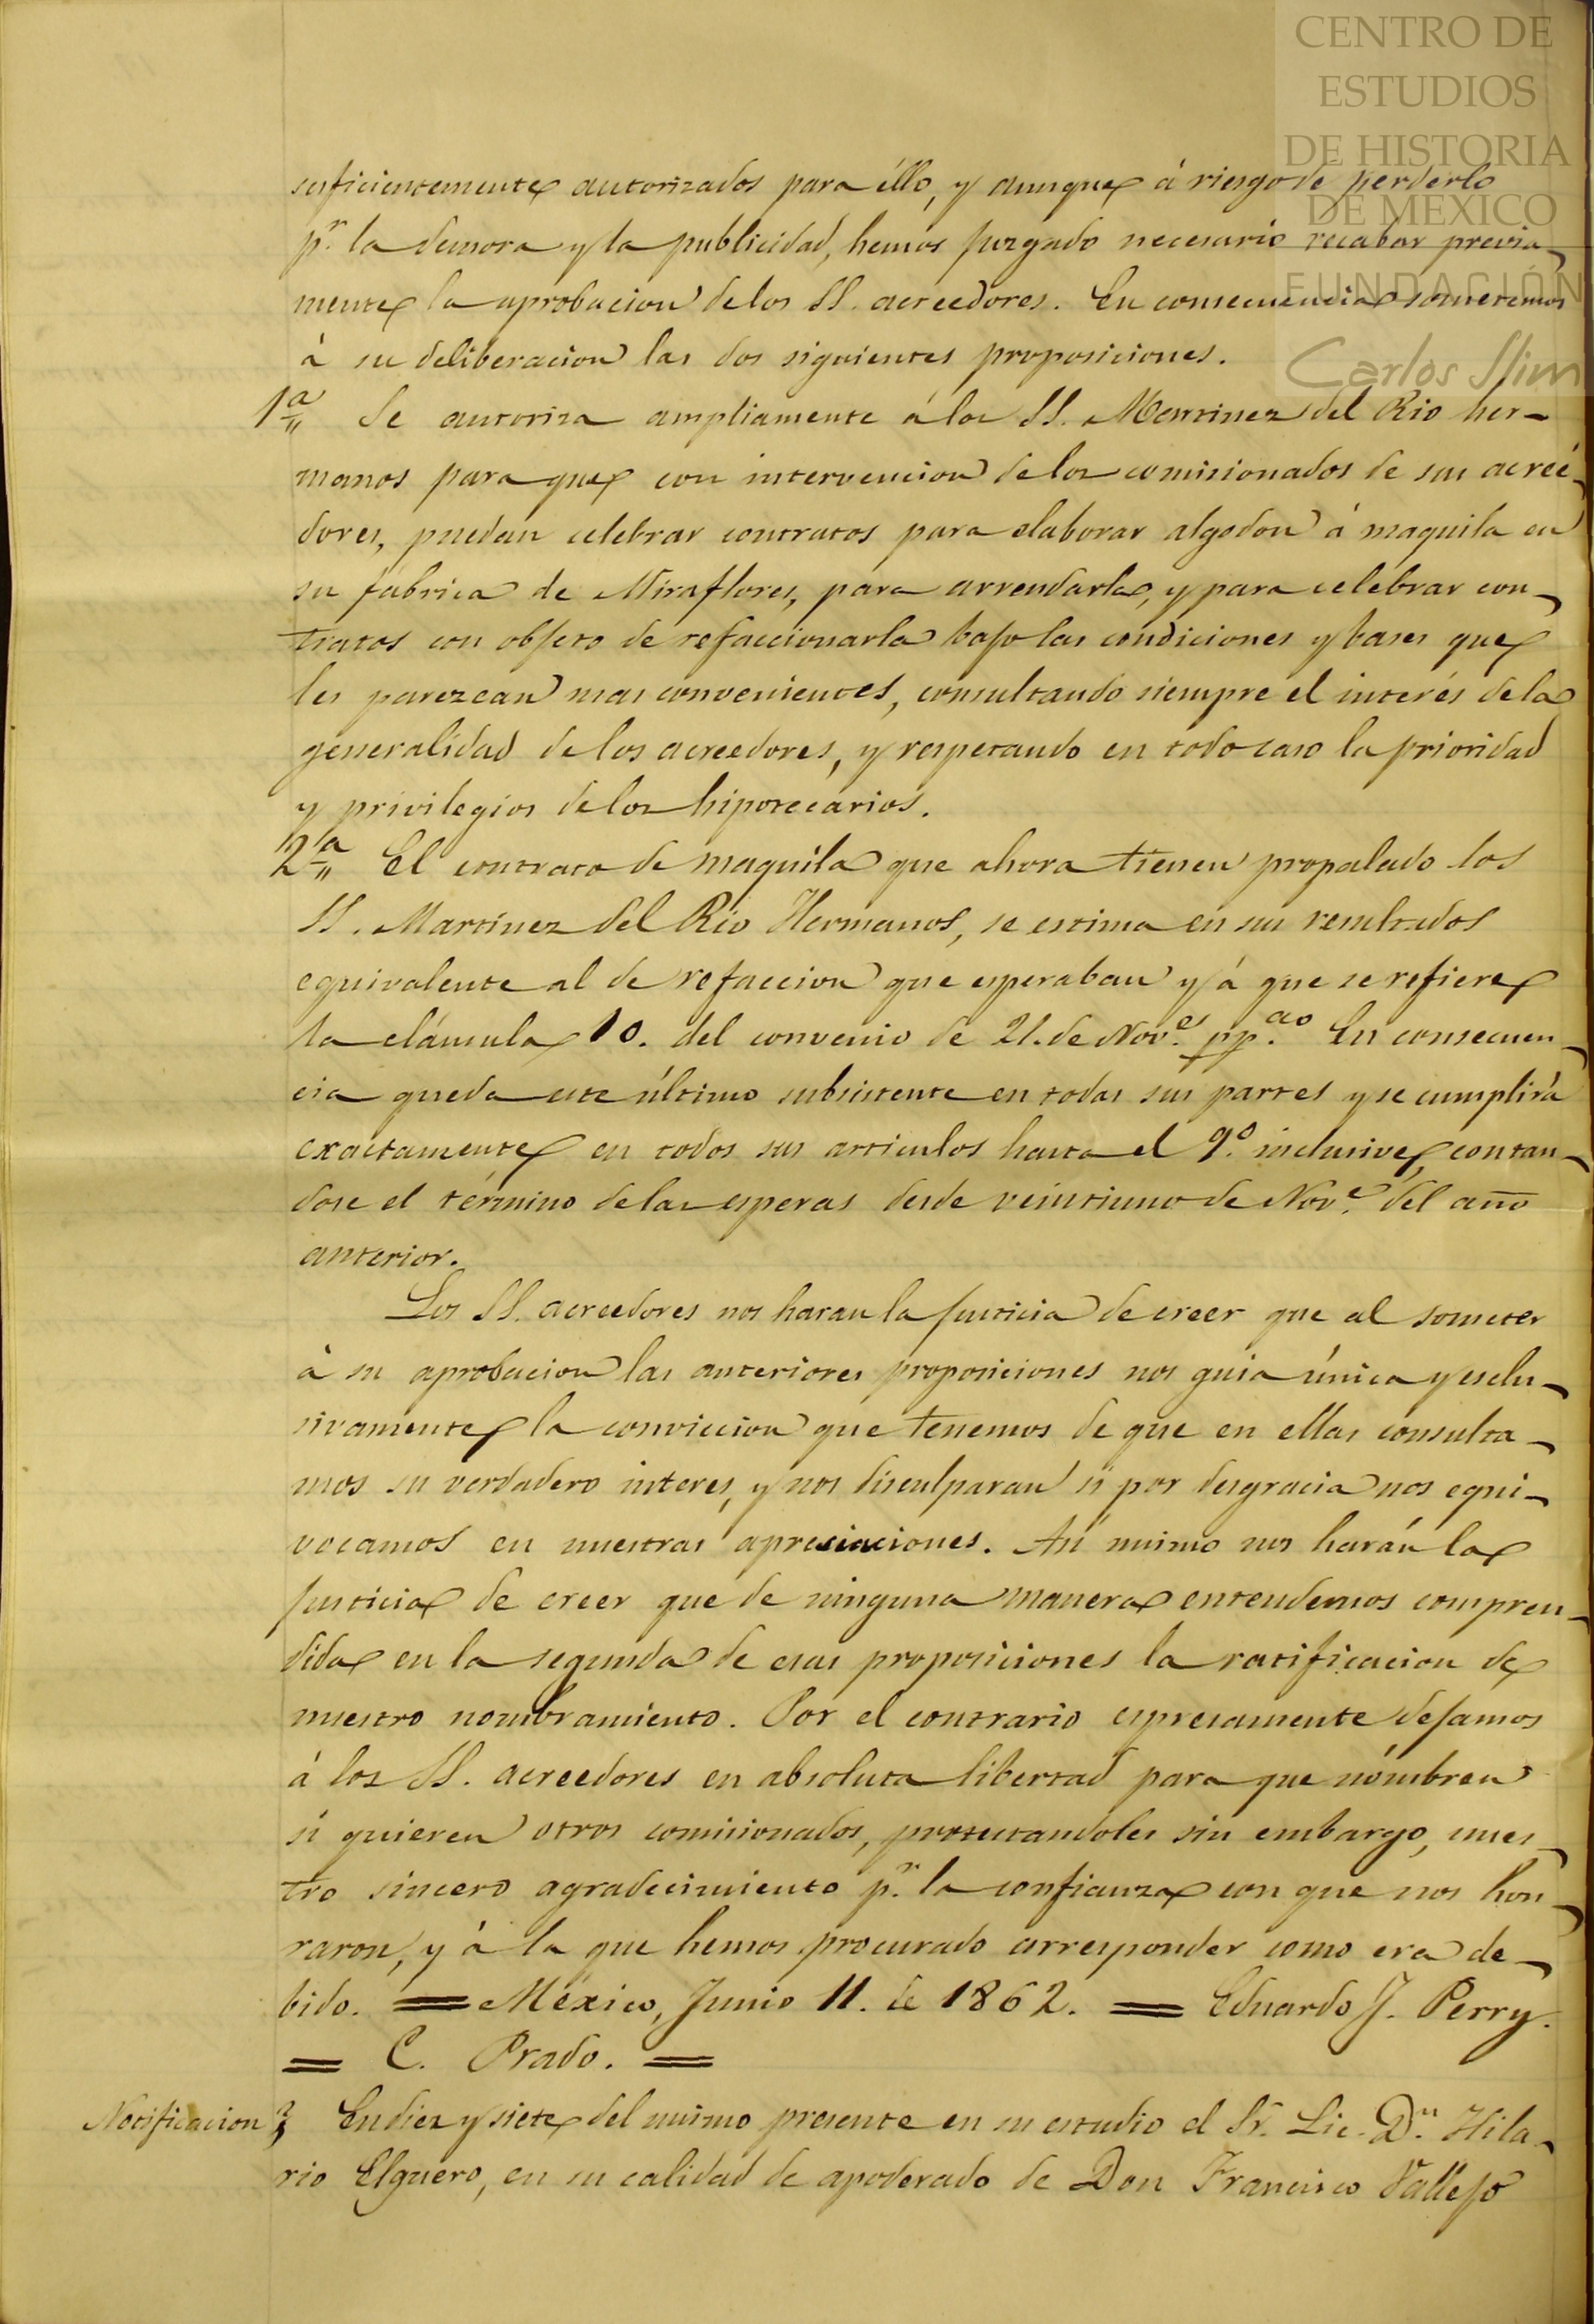 CENTRO DE
ESTUDIOS
DE HISTORIA
DE MEXICO
FUNDACIÓN
Carlos Slim
suficientemente autorizados para éllo, y aunque á riesgo de perderlo
pr. la demora y la publicidad, hemos juzgado necesario recabar previa-
mente la aprobacion de los SS. acreedores. En consecuencia sometemos
á su deliberacion las dos siguientes proposiciones.
1a„ Se autoriza ampliamente á los SS. Martinez del Rio her-
manos para que con intervencion de los comisionados de sus acree-
dores, puedan celebrar contratos para elaborar algodon á maquila en
su fábrica de Miraflores, para arrendarla, y para celebrar con-
tratos con objeto de refaccionarla bajo las condiciones y bases que
les parezcan mas convenientes, consultando siempre el interés de la
generalidad de los acreedores, y respetando en todo caso la prioridad
y privilegios de los hipotecarios.
2a„ El contrato de maquila que ahora tienen propalado los
SS. Martínez del Rio Hermanos, se estima en sus resultados
equivalente al de refaccion que esperaban y á que se refiere
la cláusula 10. del convenio de 21. de Nove. pp.do En consecuen-
cia queda este último subsistente en todas sus partes y se cumplirá
exactamente en todos sus articulos hasta el 9o. inclusive, contan-
dose el término de las esperas desde veintiuno de Nove. del año
anterior.
Los SS. acreedores nos haran la justicia de creer que al someter
á su aprobacion las anteriores proposiciones nos guia única y esclu-
sivamente la conviccion que tenemos de que en ellas consulta-
mos su verdadero interes, y nos disculparan si por desgracia nos equi-
vocamos en nuestras apreciaciones. Asi mismo nos harán la
justicia de creer que de ninguna manera entendemos compren-
dida en la segunda de esas proposiciones la ratificacion de
nuestro nombramiento. Por el contrario espresamente dejamos
á los SS. acreedores en absoluta libertad para que nómbren
si quieren otros comisionados, protestandoles sin embargo, nues-
tro sincero agradecimiento pr. la confianza con que nos hon-
raron, y á la que hemos procurado corresponder como era de-
bido. = México, Junio 11. de 1862. = Eduardo J. Perry.
= C. Prado. =
Notificacion } En diez y siete del mismo presente en su estudio el Sr. Lic. Dn. Hila-
rio Elguero, en su calidad de apoderado de Don Francisco Vallejo